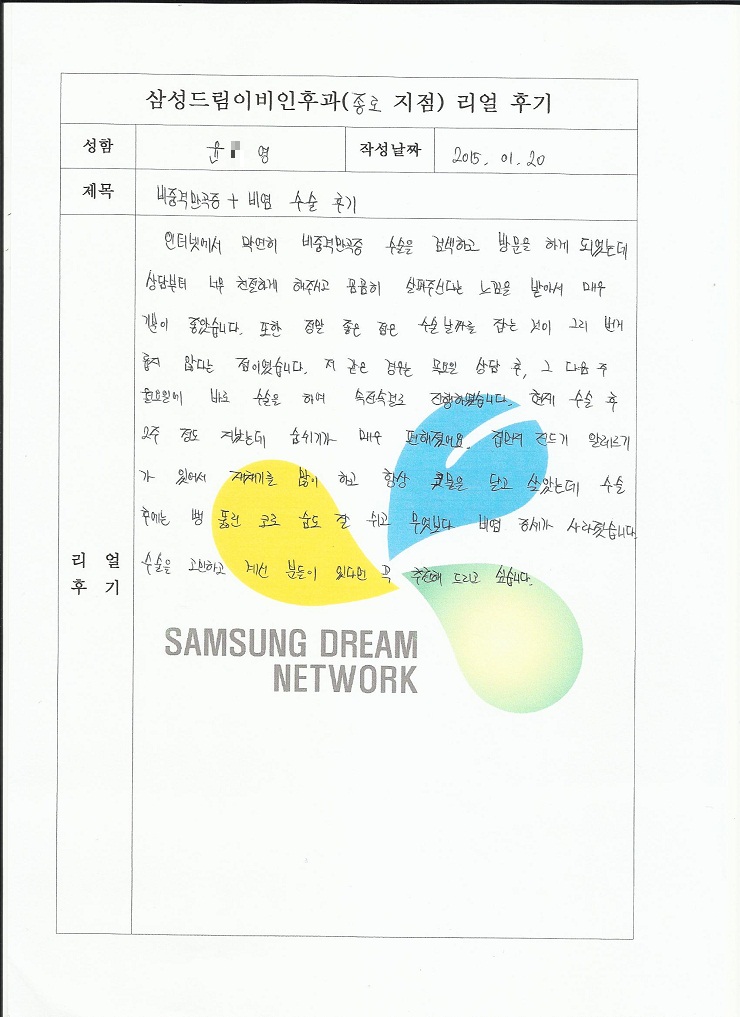 삼성드림이비인후과(종로 지점) 리얼 후기
성함 윤 영 작성날짜 2015. 01. 20
제목 비중격만곡증 + 비염 수술 후기
인터넷에서 막연히 비중격만곡증 수술을 검색하고 방문을 하게 되었는데
상담부터 너무 친절하게 해주시고 꼼꼼히 살펴주신다는 느낌을 받아서 매우
기분이 좋았습니다. 또한 정말 좋은 점은 수술날짜를 잡는 것이 그리 번거
롭지 않다는 점이였습니다. 저 같은 경우는 목요일 상담 후, 그 다음 주
월요일에 바로 수술을 하여 속전속결로 진행하였습니다. 현재 수술 후
2주 정도 지났는데 숨쉬기가 매우 편해졌어요. 집먼지 진드기 알레르기
가 있어서 재채기를 많이 하고 항상 콧물을 달고 살았는데 수술
후에는 뻥 뚫린 코로 숨도 잘 쉬고 무엇보다 비염 증세가 사라졌습니다.
수술을 고민하고 계신 분들이 있다면 꼭 추천해 드리고 싶습니다.
리 얼
후 기
SAMSUNG DREAM
NETWORK